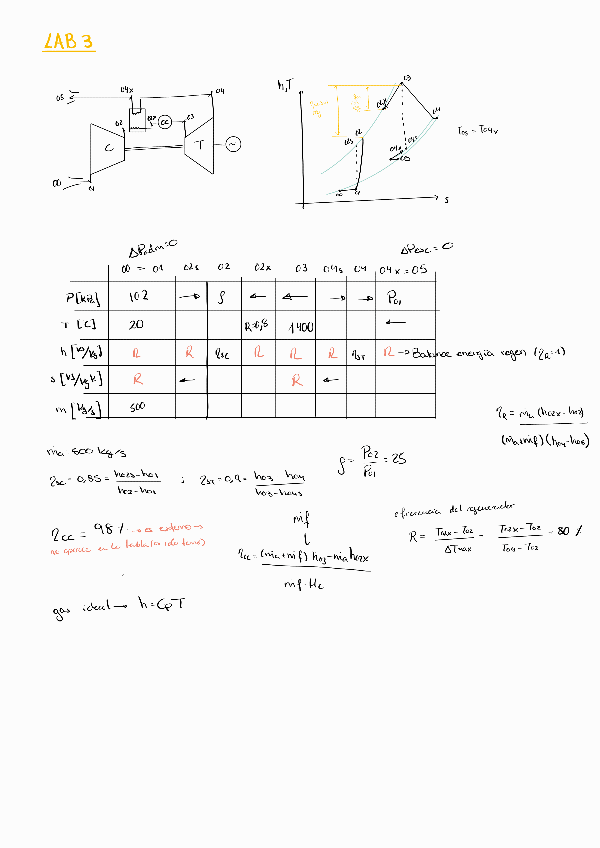 LAB 3
05
04x
04
02
02x
CC
03
C
T
00
01
h,T
03
02x
04
02
02s
04s
04x
05
00
01
s
T02x - T04x
ΔPadm=0
ΔPesc.=0
00 = 01 02s 02 02x 03 04s 04 04x=05
P [kPa] 102 → ρ ← ← → → P01
T [C] 20 R=0,8 1400 ←
h [kJ/kg] R R ηsc R R R ηst R → Balance energia regen (ηR=1)
s [kJ/kgK] R ← R ←
m [kg/s] 500
ηR = ma (h02x-h02) / (ma+mf)(h04-h05)
ma 500 kg/s
ηsc = 0,85 = h02s-h01 / h02-h01 ; ηst = 0,9 = h03 h04 / h03-h04s
ρ = P02 / P01 = 25
ηcc = 98 % → es externo →
no aparece en la tabla
mf
ηcc = (ma+mf) h03 - ma h02x / mf·Hc
eficiencia del regenerador
R = T02x-T02 / ΔTmax = T02x-T02 / T04-T02 = 80 %
gas ideal → h=CpT